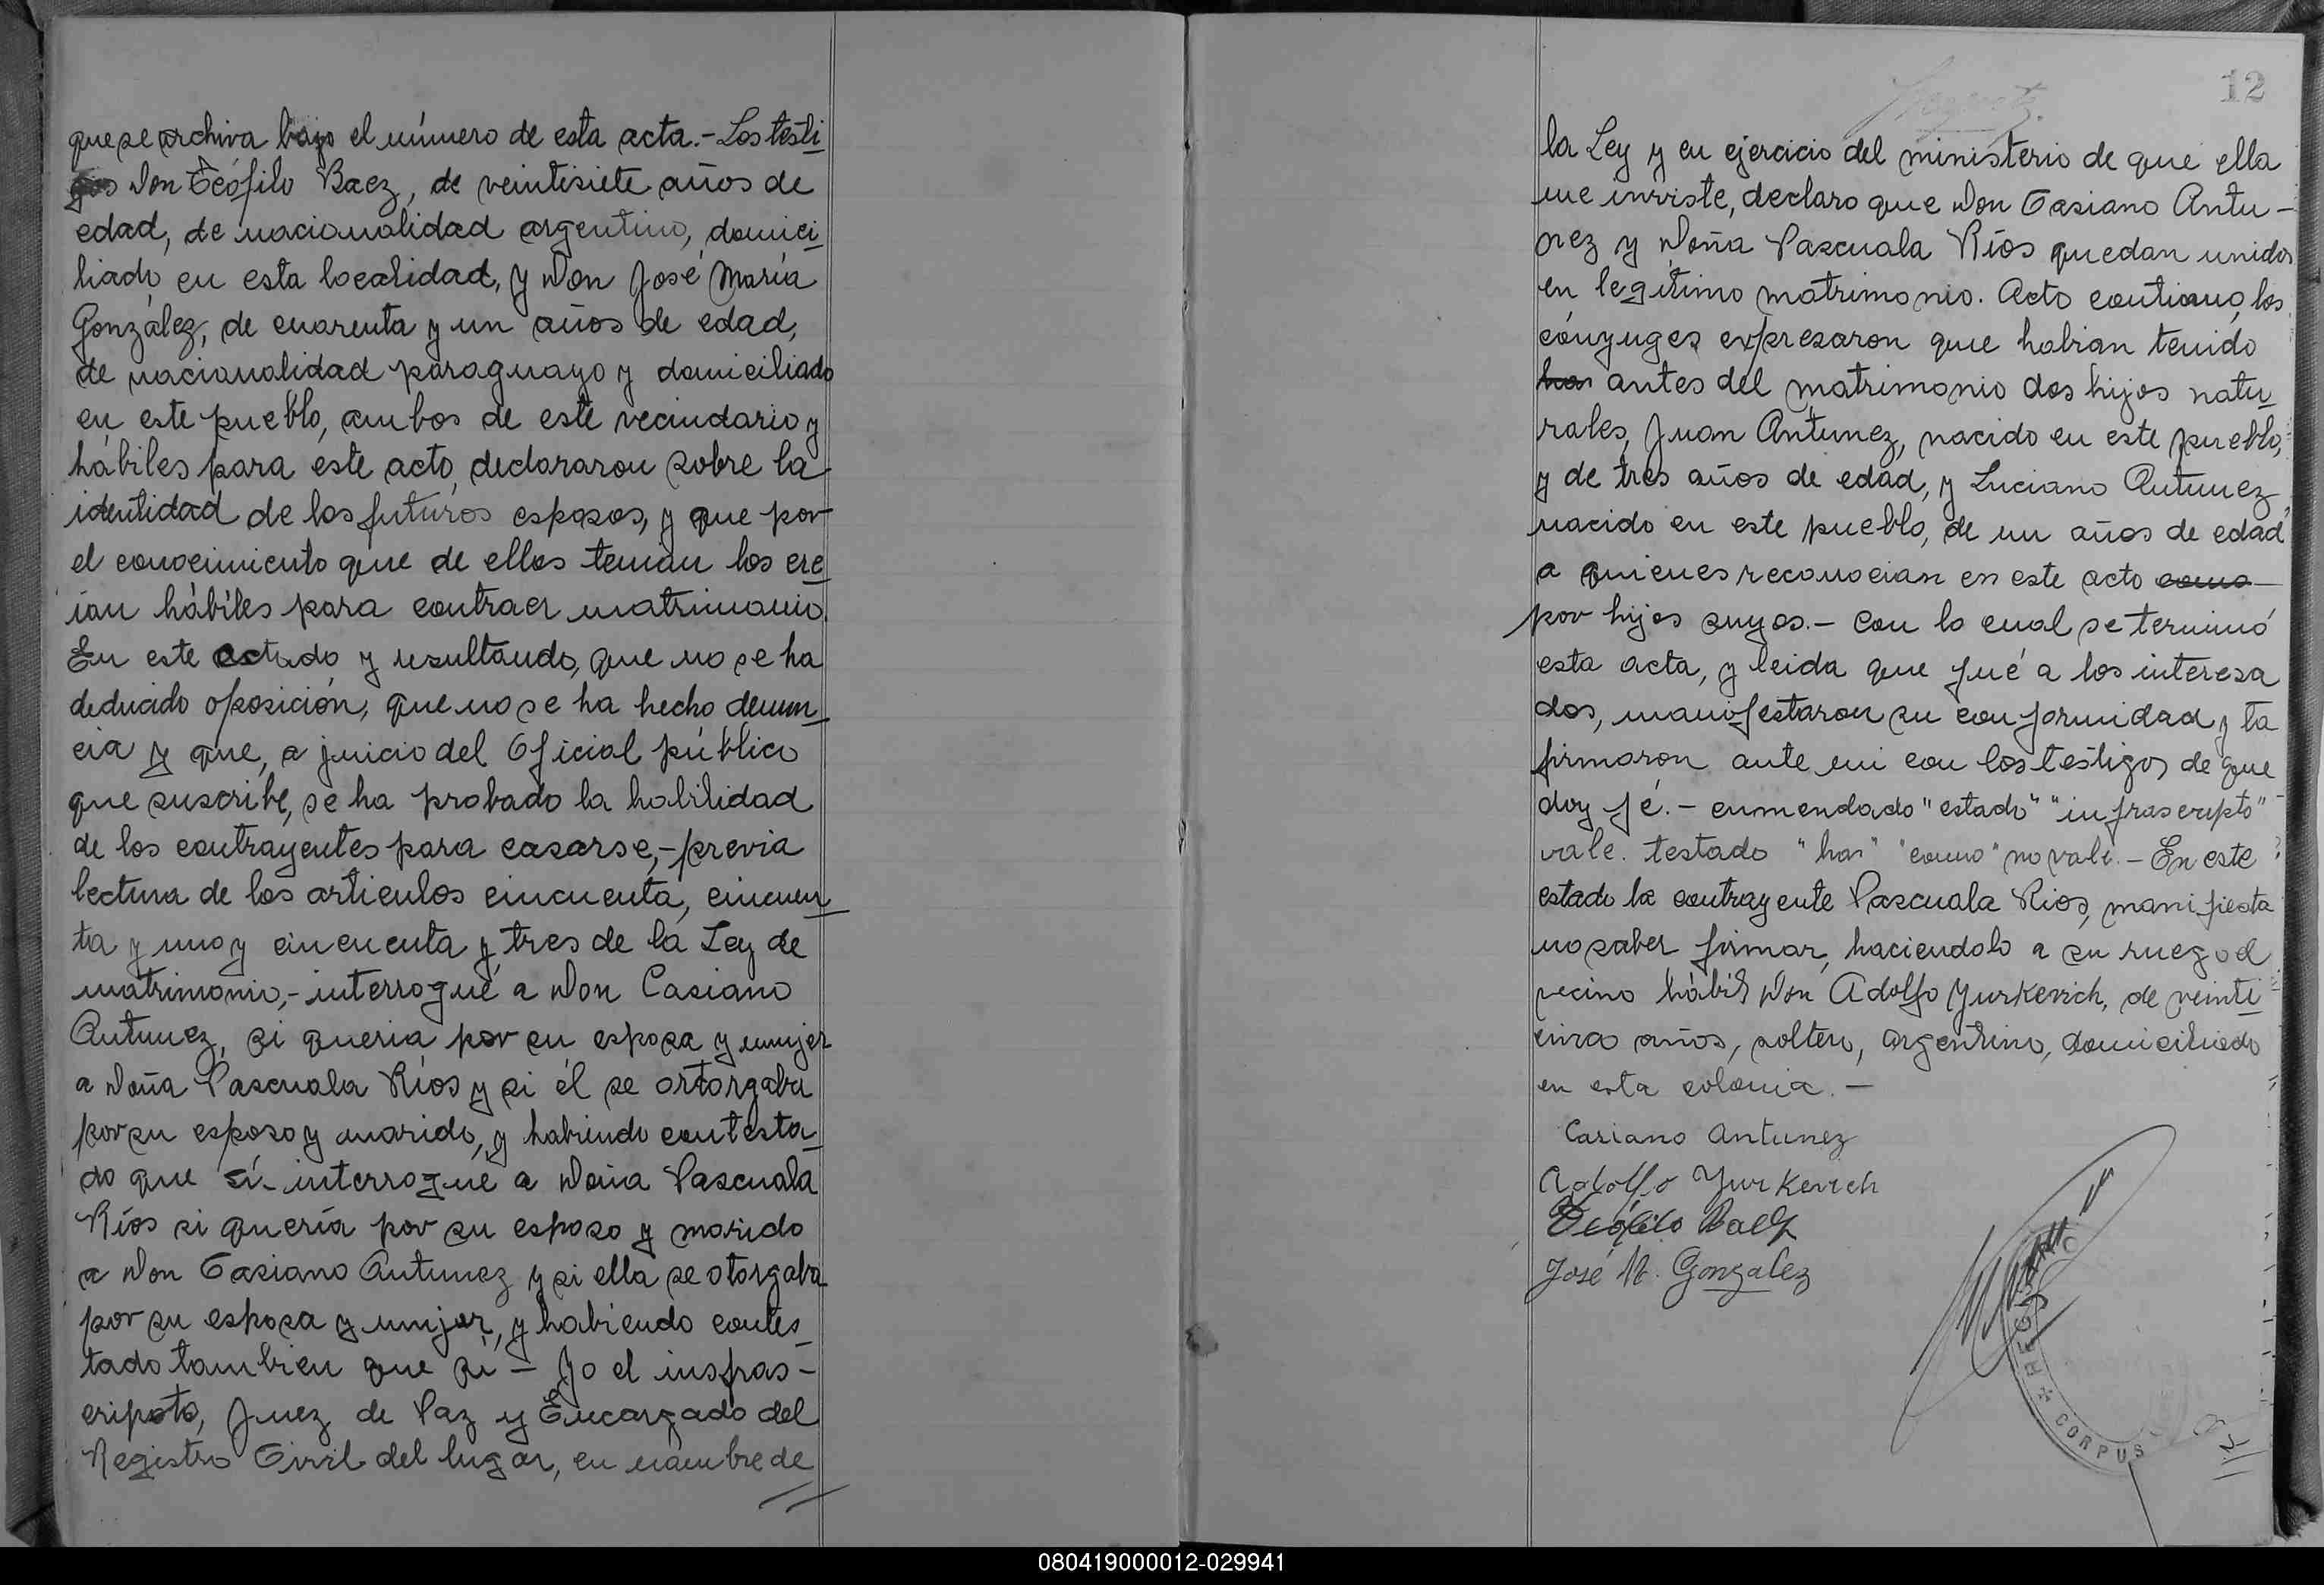 que se archiva bajo el número de esta acta.- Los testi
gos Don Teófilo Baez, de veintisiete años de
edad, de nacionalidad argentino, domici
liado en esta localidad, y Don José María
González, de cuarenta y un años de edad,
de nacionalidad paraguayo y domiciliado
en este pueblo, ambos de este vecindario y
hábiles para este acto, declararon sobre la
identidad de los futuros esposos, y que por
el conocimiento que de ellos tenían los cre
ían hábiles para contraer matrimonio.
En este estado y resultando, que no se ha
deducido oposición, que no se ha hecho denun
cia y que, a juicio del Oficial público
que suscribe, se ha probado la habilidad
de los contrayentes para casarse,- previa
lectura de los articulos cincuenta, cincuen
ta y uno y cincuenta y tres de la Ley de
matrimonio,- interrogué a Don Casiano
Antunez, si queria por su esposa y mujer
a Doña Pascuala Ríos y si él se ortorgaba
por su esposo y marido, y habiendo contesta
do que sí- interrogué a Doña Pascuala
Ríos si quería por su esposo y marido
a Don Casiano Antunez y si ella se otorgaba
por su esposa y mujer, y habiendo contes
tado tambien que si - Yo el insfras-
cripoto, Juez de Paz y Encargado del
Registro Civil del lugar, en nombre de
12
la Ley y en ejercicio del ministerio de que ella
me inviste, declaro que Don Casiano Antu-
nez y Doña Pascuala Ríos quedan unidos
en legítimo matrimonio. Acto continuo, los
cónyuges expresaron que habian tenido
han antes del matrimonio dos hijos natu
rales, Juan Antunez, nacido en este pueblo,
y de tres años de edad, y Luciano Antunez,
nacido en este pueblo, de un años de edad
a quienes reconocian en este acto como
por hijos suyos.- Con lo cual se terminó
esta acta, y leida que fué a los interesa
dos, manifestaron su conformidad y la
firmaron ante mi con los testigos de que
doy fé.- enmendado "estado" "infrascripto"
vale. testado "han" "como" no vale.- En este
estado la contrayente Pascuala Rios, manifiesta
no saber firmar, haciendolo a su ruego el
vecino hábil Don Adolfo Yurkevich, de veinti
cinco años, soltero, argentino, domiciliado
en esta colonia.-
Casiano Antunez
Adolfo Yurkevich
Teófilo Baez
José M. Gonzalez
REGISTRO
CORPUS
080419000012-029941